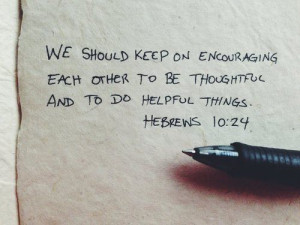 WE SHOULD KEEP ON ENCOURAGING
EACH OTHER TO BE THOUGHTFUL
AND TO DO HELPFUL THINGS.
HEBREWS 10:24